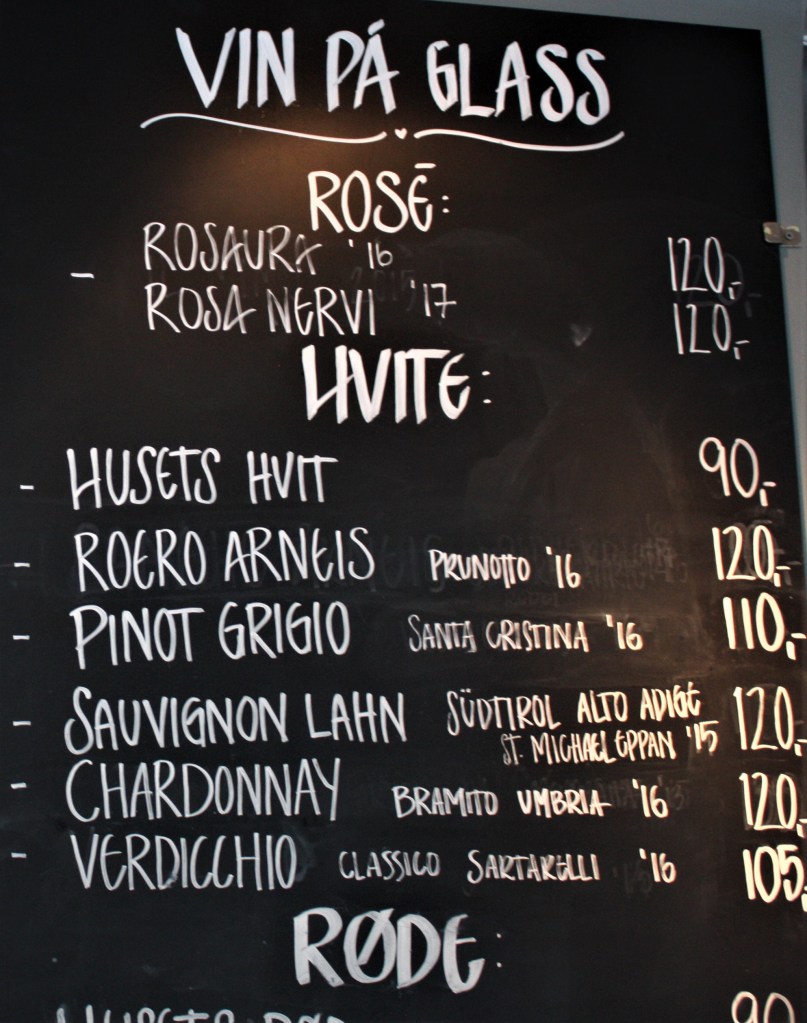 VIN PÅ GLASS
ROSĒ:
ROSAURA '16 120,-
- ROSA NERVI '17 120,-
HVITE:
- HUSETS HVIT 90,-
- ROERO ARNEIS PRUNOTTO '16 120,-
- PINOT GRIGIO SANTA CRISTINA '16 110,-
- SAUVIGNON LAHN SÜDTIROL ALTO ADIGE 120,-
ST. MICHAEL EPPAN '15
- CHARDONNAY BRAMITO UMBRIA '16 120,-
- VERDICCHIO CLASSICO SARTARELLI '16 105,
RØDE:
90